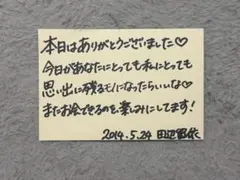 本日はありがとうございました♡
今日があなたにとっても私にとっても
思い出に残るモノになったらいいな♡
またお会できるのを楽しみにしてます!
2014.5.24 田辺